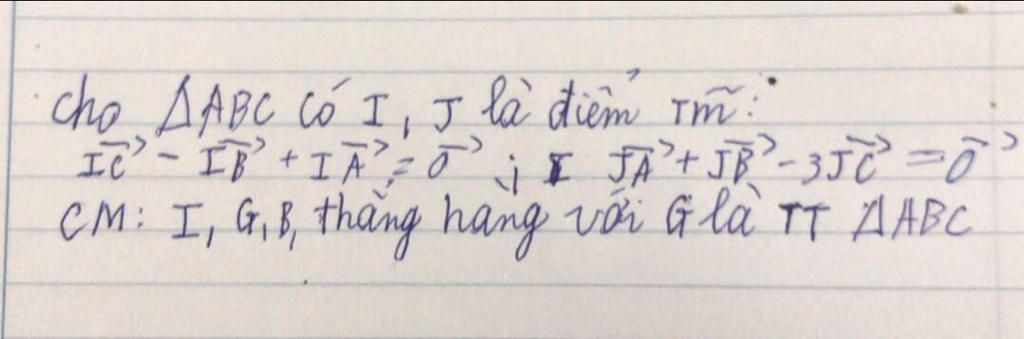 Cho ΔABC có I, J là điểm Tm̃:
$\overrightarrow{IC} - \overrightarrow{IB} + \overrightarrow{IA} = \overrightarrow{0}$ ; $\overrightarrow{JA} + \overrightarrow{JB} - 3\overrightarrow{JC} = \overrightarrow{0}$
CM: I, G, B, thẳng hàng với G là TT ΔABC